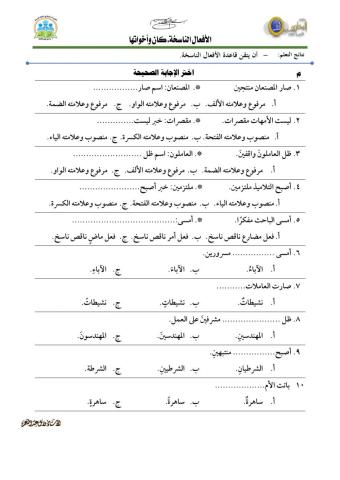 الأفعال الناسخة، كان وأخواتها
نتائج التعلم: - أن يتقن قاعدة الأفعال الناسخة.
م اختر الإجابة الصحيحة
١. صار المصنعان منتجين * المصنعان: اسم صار.................
أ. مرفوع وعلامته الألف. ب. مرفوع وعلامته الواو. ج. مرفوع وعلامته الضمة.
٢. ليست الأمهات مقصرات. * مقصرات: خبر ليست..............
أ. منصوب وعلامته الفتحة. ب. منصوب وعلامته الكسرة. ج. منصوب وعلامته الياء.
٣. ظل العاملون واقفين. * العاملون: اسم ظل..........................
أ. مرفوع وعلامته الضمة. ب. مرفوع وعلامته الألف. ج. مرفوع وعلامته الواو.
٤. أصبح التلاميذ ملتزمين. * ملتزمين: خبر أصبح.......................
أ. منصوب وعلامته الياء. ب. منصوب وعلامته الفتحة. ج. منصوب وعلامته الكسرة.
٥. أمسى الباحث مفكرًا. * أمسى:.......................................
أ. فعل مضارع ناقص ناسخ. ب. فعل أمر ناقص ناسخ. ج. فعل ماضٍ ناقص ناسخ.
٦. أمسى ................ مسرورين.
أ. الآباءُ. ب. الآباءَ. ج. الآباءِ.
٧. صارت العاملات...........
أ. نشيطاتٌ. ب. نشيطاتٍ. ج. نشيطاتٌ.
٨. ظل ...................... مشرفينَ على العمل.
أ. المهندسين. ب. المهندسينَ. ج. المهندسونَ.
٩. أصبح................ منتبهين.
أ. الشرطيان. ب. الشرطيين. ج. الشرطة.
١٠. باتت الأم...................
أ. ساهرةٌ. ب. ساهرةً. ج. ساهرةٍ.